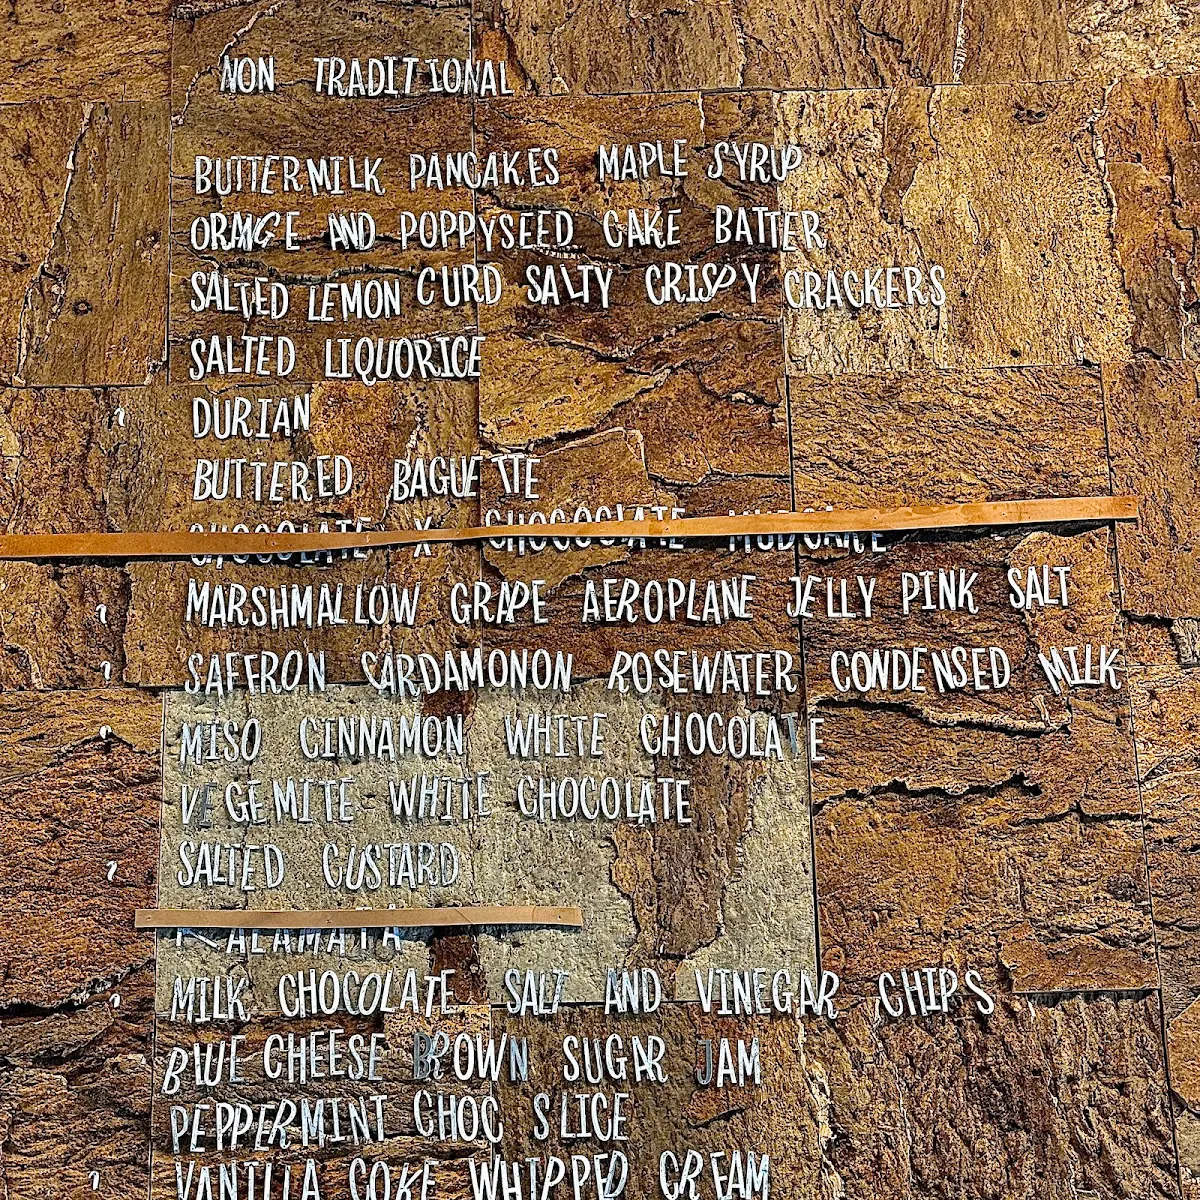 NON TRADITIONAL
BUTTERMILK PANCAKES MAPLE SYRUP
ORANGE AND POPPYSEED CAKE BATTER
SALTED LEMON CURD SALTY CRISPY CRACKERS
SALTED LIQUORICE
DURIAN
BUTTERED BAGUETTE
CHOCOLATE X CHOCOCLATE MUDCAKE
MARSHMALLOW GRAPE AEROPLANE JELLY PINK SALT
SAFFRON CARDAMONON ROSEWATER CONDENSED MILK
MISO CINNAMON WHITE CHOCOLATE
VEGEMITE WHITE CHOCOLATE
SALTED CUSTARD
KALAMATA
MILK CHOCOLATE SALT AND VINEGAR CHIPS
BLUE CHEESE BROWN SUGAR JAM
PEPPERMINT CHOC SLICE
VANILLA COKE WHIPPED CREAM